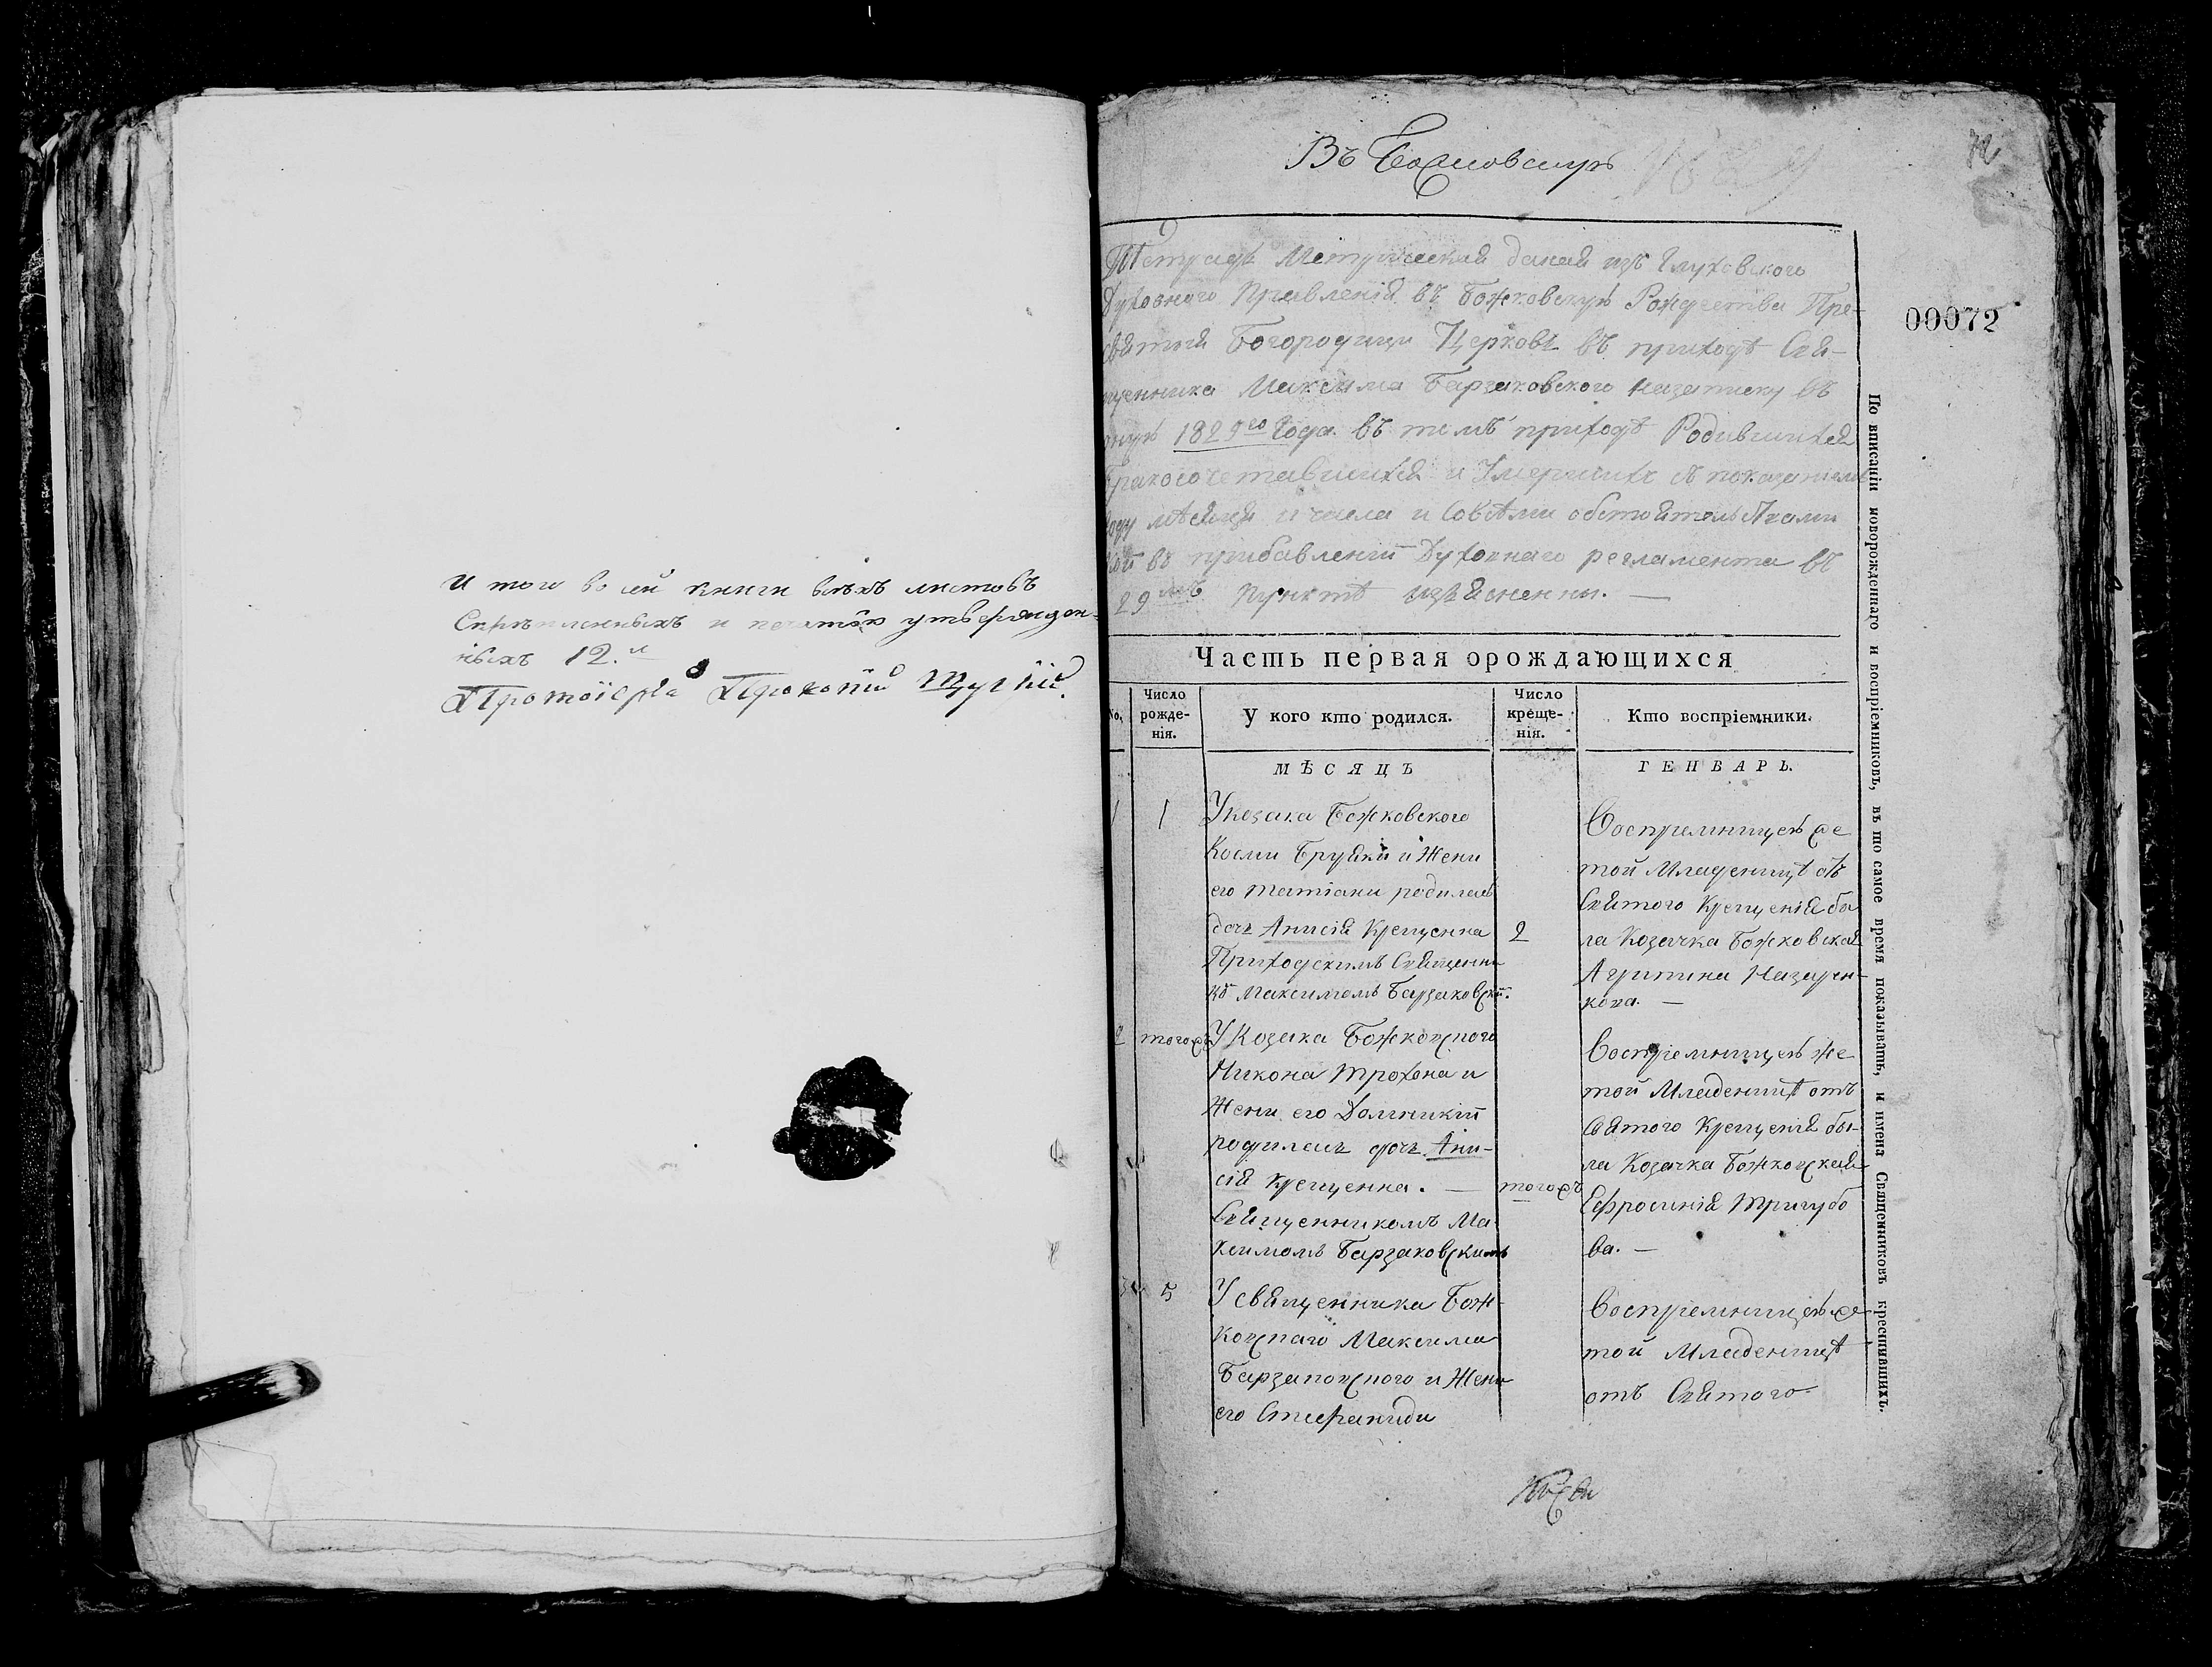 И того во сей книги всѣхъ листовъ
Скрѣпленныхъ и печатью утвержден-
ныхъ 12.
Протоіерей Прокопій
72
Въ Божковскую
00072
Тетрадь Метрическая данная изъ Глуховского
Духовного Правленія въ Божковскую Рождества Пре-
святыя Богородици Церковь въ приходъ Свя-
щенника Максима Барзаковского на записку въ
оную 1829го Года въ томъ приходѣ Родившихся
Бракосочетавшихся и Умершихъ съ показаніемъ
году мѣсяца и числа и со всѣми обстоятельствами
въ прибавленіи Духовнаго регламента въ
29мъ Пунктѣ изъясненны. —
Часть первая орождающихся
No, Число рожде- нія. У кого кто родился. Число креще- нія. Кто воспріемники.
МѢСЯЦЪ ГЕНВАРЬ.
1 1 У козака Божковского
Косми Бруяки и Жени
его Татіани родилась
дочь Анисія Крещенна 2
Приходскимъ Священни
къ Максимомъ Барзаковск.
Воспріемницею же
той Младеницѣ отъ
Святого Крещенія бы
ла Козачка Божковская
Агрипина Назарен-
кова. —
2 того ж У Козака Божковского
Никона Трохона и
Жени его Домникіи
родилась дочь Ани-
сія Крещенна. — того жъ
Священникомъ Ма
ксимомъ Барзаковскимъ
Воспріемницею же
той Младеницѣ отъ
Святого Крещенія бы-
ла Козачка Божковская
Ефросинія Тригубо
ва. —
3 5 У священника Бож-
ковского Максима
Барзаковского и Жени
его Стефаниди
Воспріемницею же
той Младеницѣ
отъ Святого
По вписаніи новорожденнаго и воспріемниковъ, въ то самое время показывать, и имена Священниковъ крестившихъ.